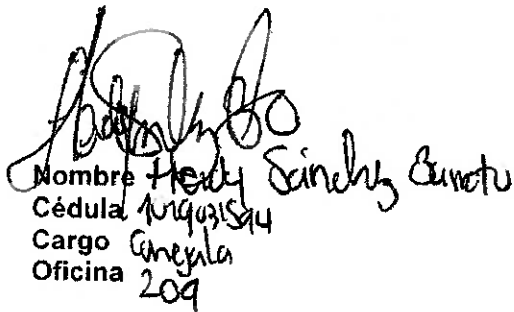 Nombre Heidy Sánchez Barreto
Cédula
Cargo Concejala
Oficina 209